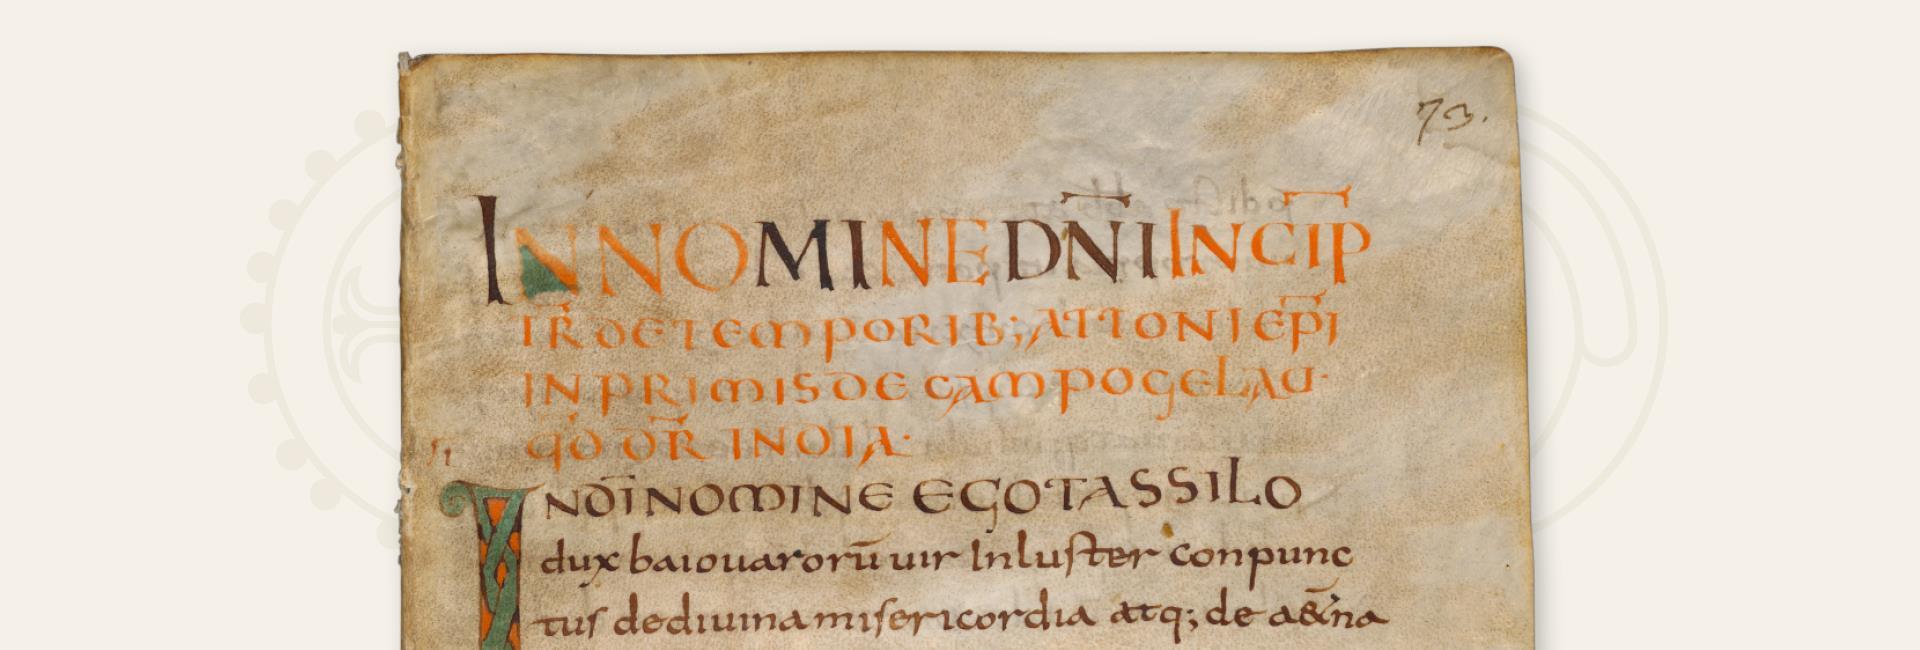 73.
INNOMINE DN̄I INCIP̄
IR̄ DE TEMPORIB; ATTONI EP̄I
IN PRIMIS DE CAMPO GELAU·
QD̄ DR̄ INDIA·
IN DĪ NOMINE EGO TASSILO
dux baiouuarorū uir Inluster conpunc
tus de diuina misericordia atq; de a&̄na